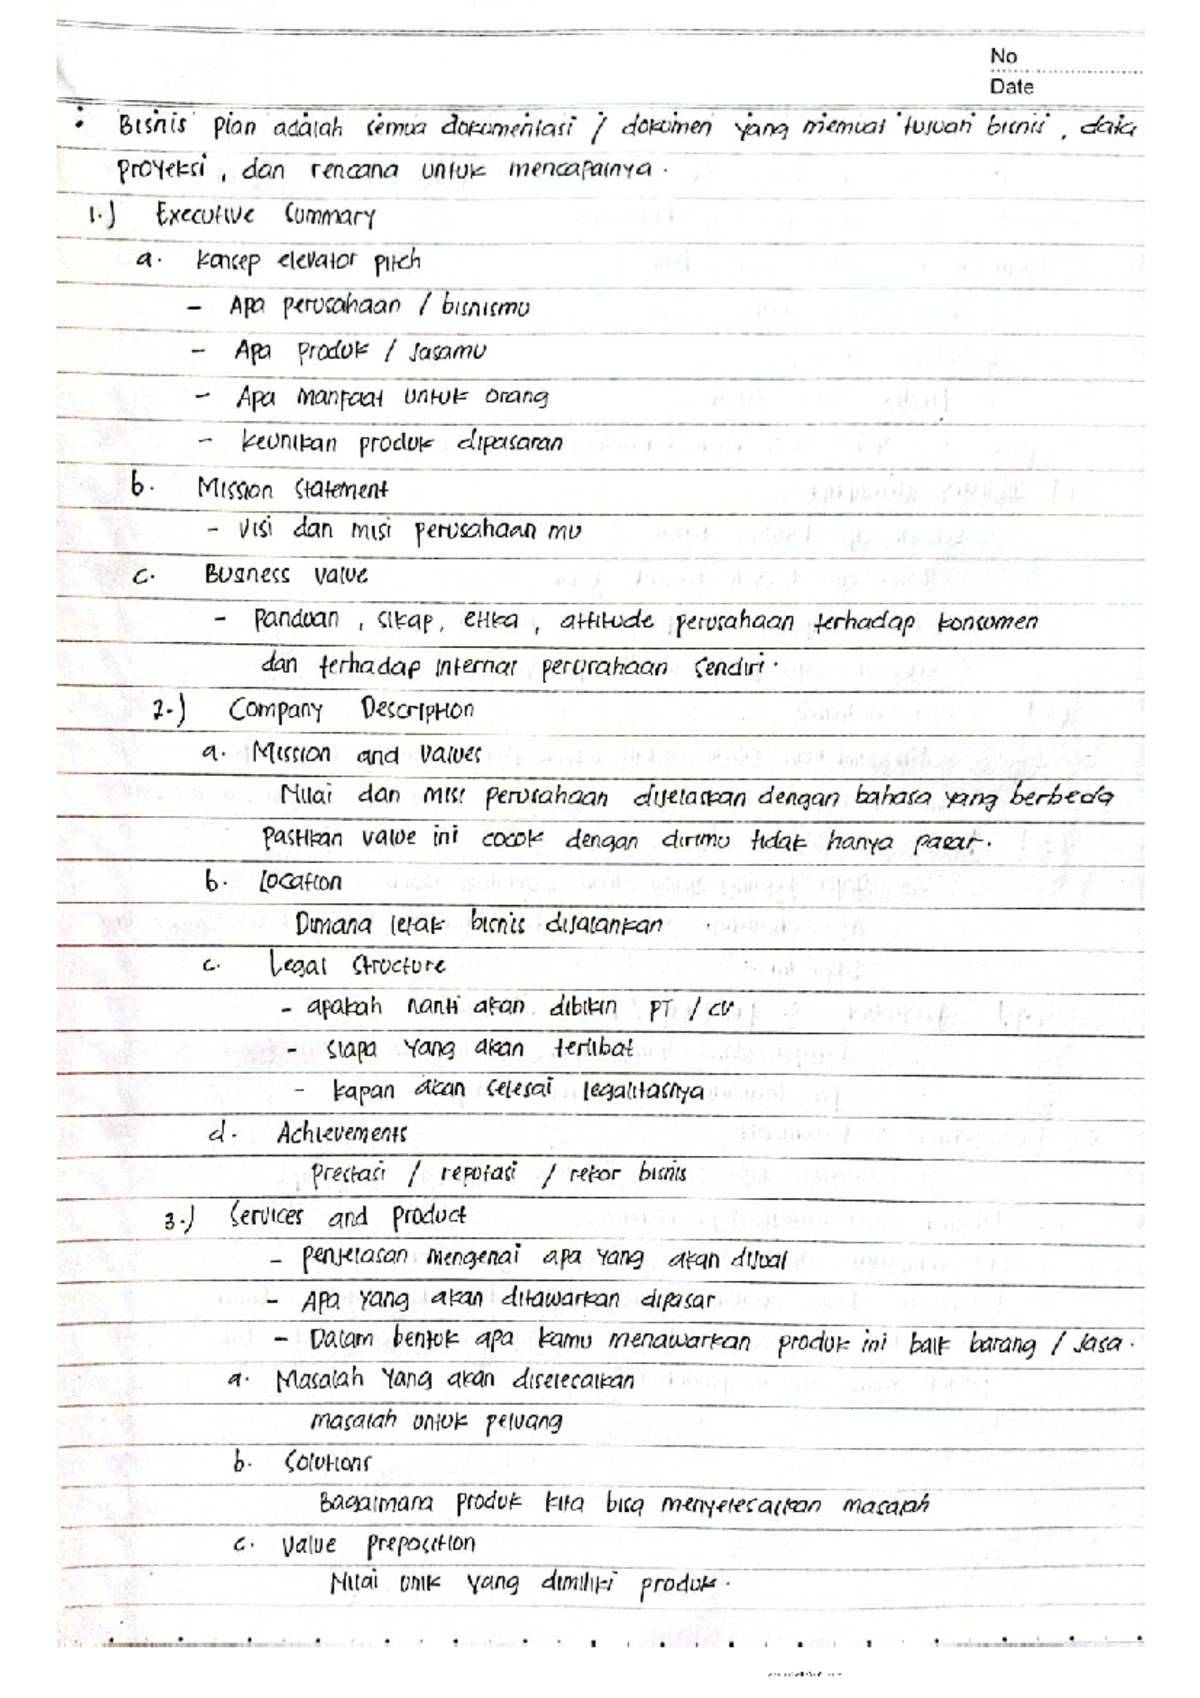 No
Date
• Bisnis plan adalah semua dokumentasi / dokumen yang memuat tujuan bisnis, data
proyeksi, dan rencana untuk mencapainya.
1.) Executive Summary
a. Konsep elevator pitch
- Apa perusahaan / bisnismu
- Apa produk / Jasamu
- Apa manfaat untuk orang
- keunikan produk dipasaran
b. Mission statement
- Visi dan misi perusahaan mu
c. Business value
- Panduan, sikap, etika, attitude perusahaan terhadap konsumen
dan terhadap internar perusahaan sendiri.
2.) Company Description
a. Mission and values
Nilai dan misi perusahaan dijelaskan dengan bahasa yang berbeda
pastikan value ini cocok dengan dirimu tidak hanya pasar.
b. Location
Dimana letak bisnis dijalankan
c. Legal structure
- apakah nanti akan dibikin PT / CV
- siapa yang akan terlibat
- kapan akan selesai legalitasnya
d. Achievements
prestasi / reputasi / rekor bisnis
3.) Services and product
- penjelasan mengenai apa yang akan dijual
- Apa yang akan ditawarkan dipasar
- Dalam bentuk apa kamu menawarkan produk ini baik barang / Jasa.
a. Masalah yang akan diselesaikan
masalah untuk peluang
b. Solutions
Bagaimana produk kita bisa menyelesaikan masalah
c. Value preposition
Nilai unik yang dimiliki produk.